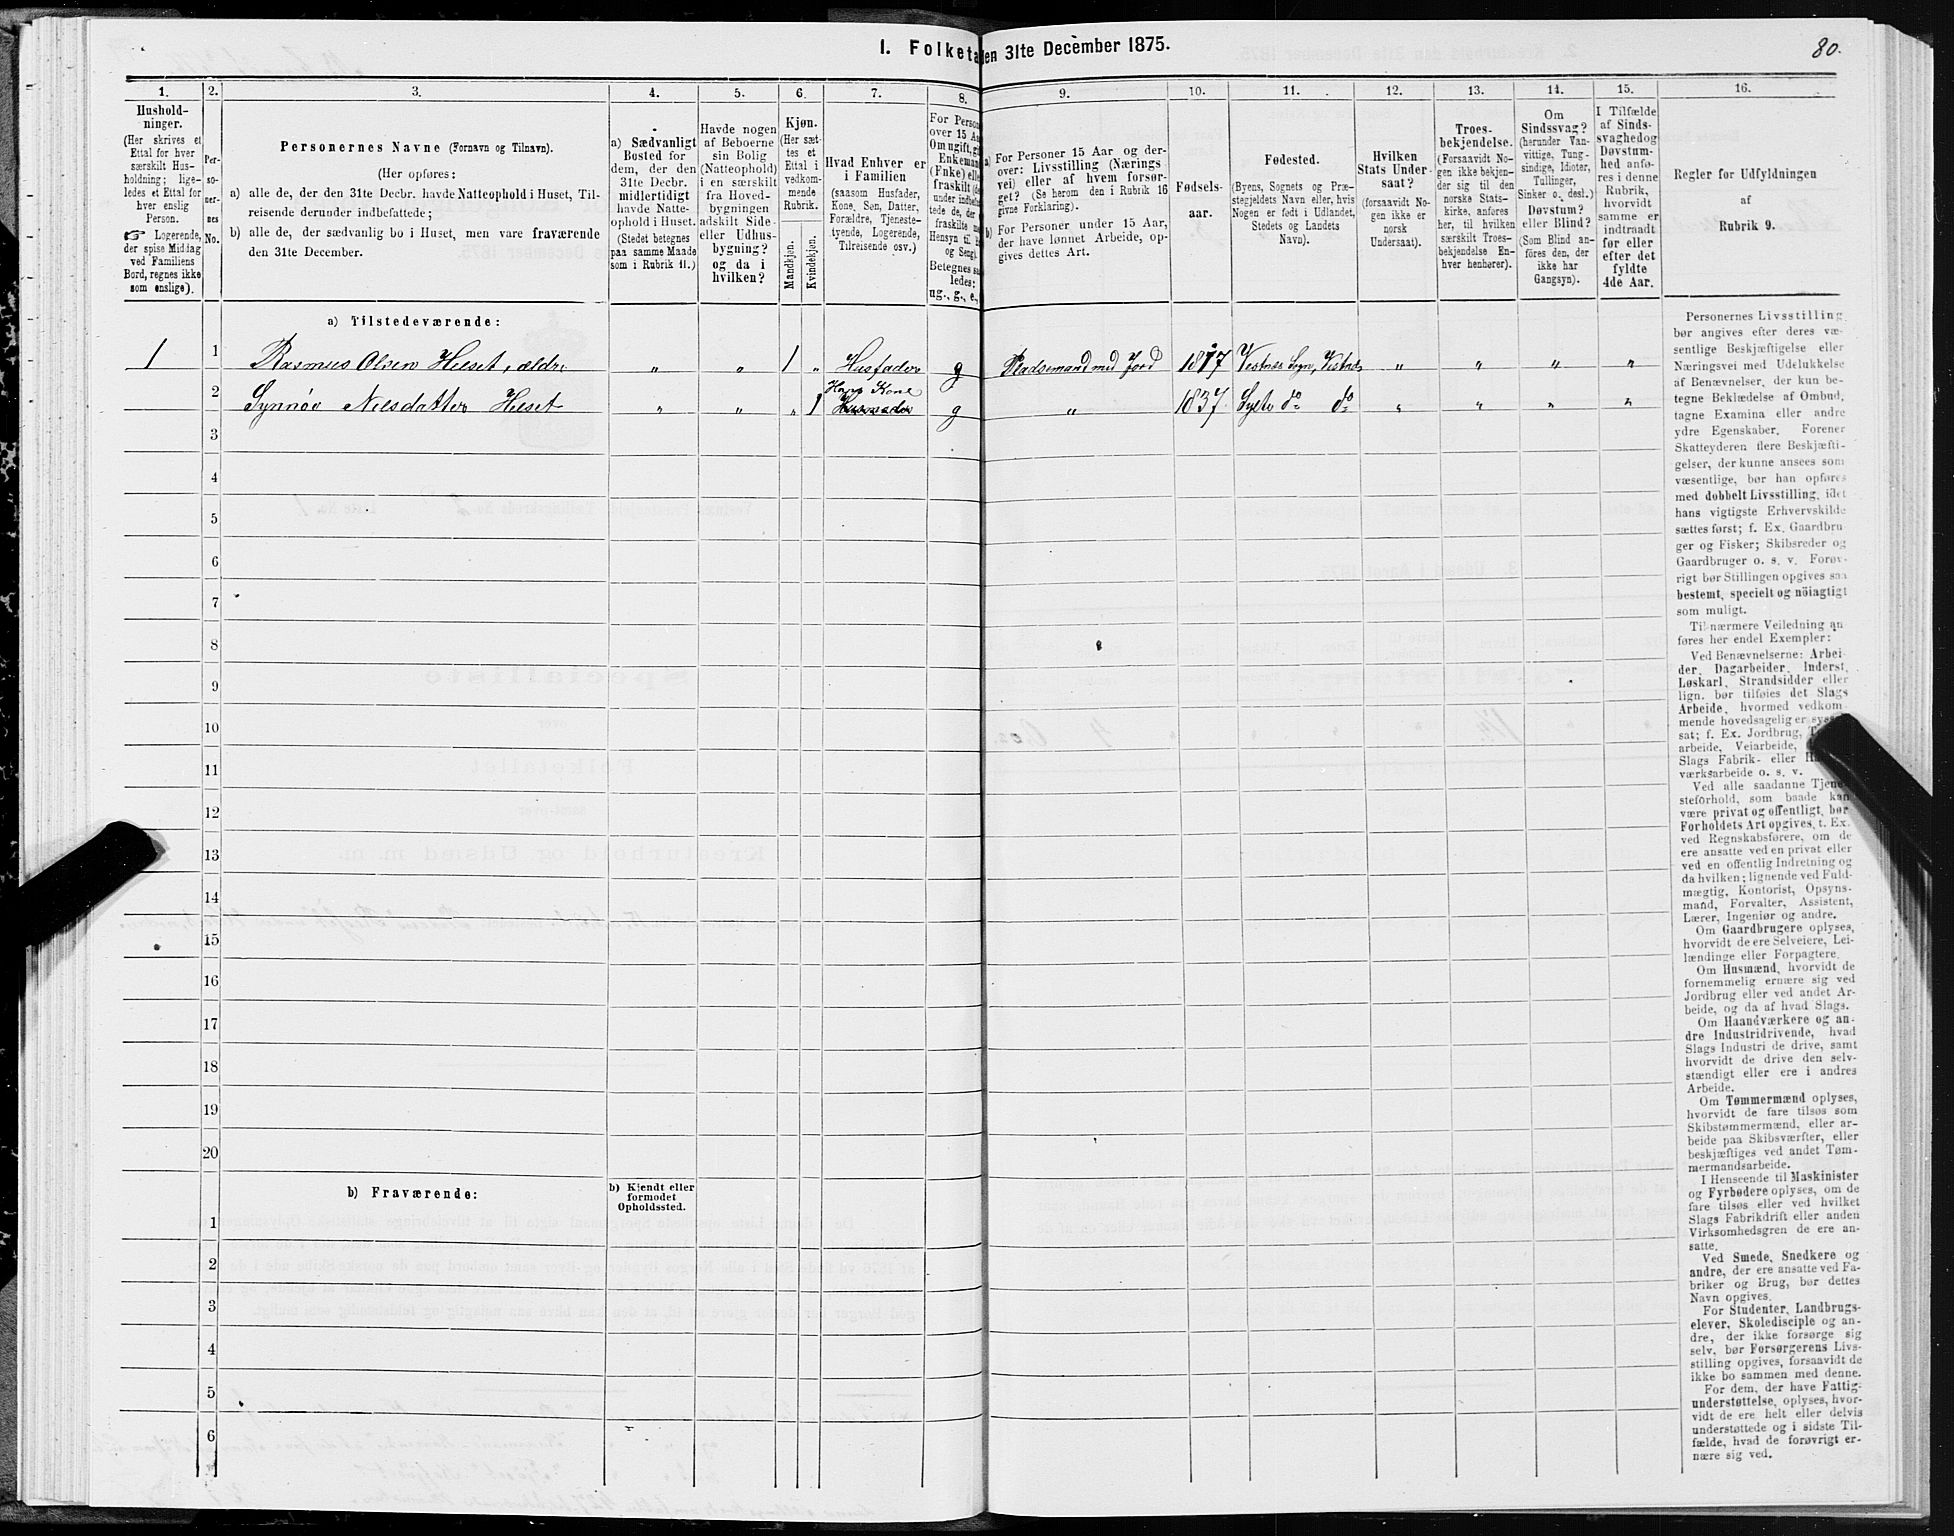 I. Folketa
den 31te December 1875.
80.
1.
2.
3.
4.
5.
6.
7.
8.
9.
10.
11.
12.
13.
14.
15.
16.
Hushold-
ninger.
(Her skrives et
Ettal for hver
særskilt Hus-
holdning; lige-
ledes et Ettal for
hver enslig
Person.
☞ Logerende,
der spise Middag
ved Familiens
Bord, regnes ikke
som enslige).
Per-
so-
ner-
nes
No.
Personernes Navne (Fornavn og Tilnavn).
(Her opføres:
a) alle de, der den 31te Decbr. havde Natteophold i Huset, Til-
reisende derunder indbefattede;
b) alle de, der sædvanlig bo i Huset, men vare fraværende
den 31te December.
a) Sædvanligt
Bosted for
dem, der den
31te Decbr.
midlertidigt
havde Natte-
ophold i Huset.
(Stedet betegnes
paa samme Maade
som i Rubrik 11.)
Havde nogen
af Beboerne
sin Bolig
(Natteophold)
i en særskilt
fra Hoved-
bygningen
adskilt Side-
eller Udhus-
bygning?
og da i
hvilken?
Kjøn.
(Her sæt-
tes et
Ettal i
vedkom-
mende
Rubrik.
Mandkjøn.
Kvindekjøn.
Hvad Enhver er
i Familien
(saasom Husfader,
Kone, Søn, Datter,
Forældre, Tjeneste-
tyende, Logerende,
Tilreisende osv.)
For Person
over 15 Aa
Om ugift, gi
Enkemand
(Enke) elle
fraskilt (de
under indbefa
tede de, der e
fraskilte me
Hensyn til. B
og Seng).
Betegnes sa
ledes:
ug., g., e.,
a) For Personer 15 Aar og der-
over: Livsstilling (Nærings
vei) eller af hvem forsør-
get? (Se herom den i Rubrik 16
givne Forklaring).
b) For Personer under 15 Aar,
der have lønnet Arbeide, op-
gives dettes Art.
Fødsels-
aar.
Fødested.
(Byens, Sognets og Præ-
stegjeldets Navn eller, hvis
Nogen er født i Udlandet,
Stedets og Landets
Navn).
Hvilken
Stats Under-
saat?
(forsaavidt No-
gen ikke er
norsk
Undersaat).
Troes-
bekjendelse.
(Forsaavidt No-
gen ikke bekjen-
der sig til den
norske Stats-
kirke, anføres
her, til hvilken
særskilt Troes-
bekjendelse En-
hver henhører).
Om
Sindssvag?
(herunder Van-
vittige, Tung-
sindige, Idioter,
Tullinger,
Sinker o. desl.)
Døvstum?
eller Blind?
(Som Blind an-
føres den, der
ikke har
Gangsyn).
I Tilfælde
af Sinds-
svaghedog
Døvstum-
hed anfø-
res i denne
Rubrik,
hvorvidt
samme er
indtraadt
før eller
efter det
fyldte
4de Aar.
Regler for Udfyldningen
af
Rubrik 9.
a) Tilstedeværende:
1 1 Rasmus Olsen Helset, ældre " " 1 " Husfader g Pladsemand med Jord 1817 Vestnes Sogn, Vestnes " " " "
Hans Kone
2 Synnøv Nilsdatter Helset " " " 1 Husmoder g " 1837 Sylte do do " " " "
3
4
5
6
7
8
9
10
11
12
13
14
15
16
17
18
19
20
b) Fraværende:
b) Kjendt eller
formodet
Opholdssted.
1
2
3
4
5
6
Personernes Livsstilling
bør angives efter deres væ-
sentlige Beskjæftigelse eller
Næringsvei med Udelukkelse
af Benævnelser, der kun be-
tegne Beklædelse af Ombud,
tagne Examina eller andre
ydre Egenskaber. Forener
Skatteyderen flere Beskjæfti-
gelser, der kunne ansees som
væsentlige, bør han opføres
med dobbelt Livsstilling, idet
hans vigtigste Erhvervskilde
sættes først; f. Ex. Gaardbru-
ger og Fisker; Skibsreder og
Gaardbruger o. s. v. Forøv-
rigt bør Stillingen opgives saa
bestemt, specielt og nöiagtigt
som muligt.
Til nærmere Veiledning an
føres her endel Exempler:
Ved Benævnelserne: Arbei-
der, Dagarbeider, Inderst,
Løskarl, Strandsidder eller
lign. bør tilføies det Slags
Arbeide, hvormed vedkom-
mende hovedsagelig er syssel
sat; f. Ex. Jordbrug,
arbeide, Veiarbeide,
Slags Fabrik- eller
værksarbeide o. s. v.
Ved alle saadanne Tjene-
steforhold, som baade kan
være privat og offentligt, bør
Forholdets Art opgives, t. Ex.
ved Regnskabsførere, om de
ere ansatte ved en privat eller
ved en offentlig Indretning og
da hvilken; lignende ved Fuld-
mægtig, Kontorist, Opsyns-
mand, Forvalter, Assistent,
Lærer, Ingeniør og andre.
Om Gaardbrugere oplyses,
hvorvidt de ere Selveiere, Lei-
lændinge eller Forpagtere.
Om Husmænd, hvorvidt de
fornemmelig ernære sig ved
Jordbrug eller ved andet Ar-
beide, og da af hvad Slags.
Om Haandværkere og an-
dre Industridrivende, hvad
Slags Industri de drive, samt
hvorvidt de drive den selv-
stændigt eller ere i andres
Arbeide.
Om Tømmermænd oplyses,
hvorvidt de fare tilsøs som
Skibstømmermænd, eller ar-
beide paa Skibsværfter, eller
beskjæftiges ved andet Tøm-
mermandsarbeide.
I Henseende til Maskinister
og Fyrbødere oplyses, om de
fare tilsøs eller ved hvilket
Slags Fabrikdrift eller anden
Virksomhedsgren de ere an-
satte.
Ved Smede, Snedkere og
andre, der ere ansatte ved Fa-
briker og Brug, bør dettes
Navn opgives.
For Studenter, Landbrugs-
elever, Skoledisciple og an-
dre, der ikke forsørge sig
selv, bør Forsørgerens Livs-
stilling opgives, forsaavidt de
ikke bo sammen med denne.
For dem, der have Fattig-
understøttelse, oplyses, hvor-
vidt de ere helt eller delvis
understøttede og i sidste Til-
fælde, hvad de forøvrigt er-
nære sig ved.